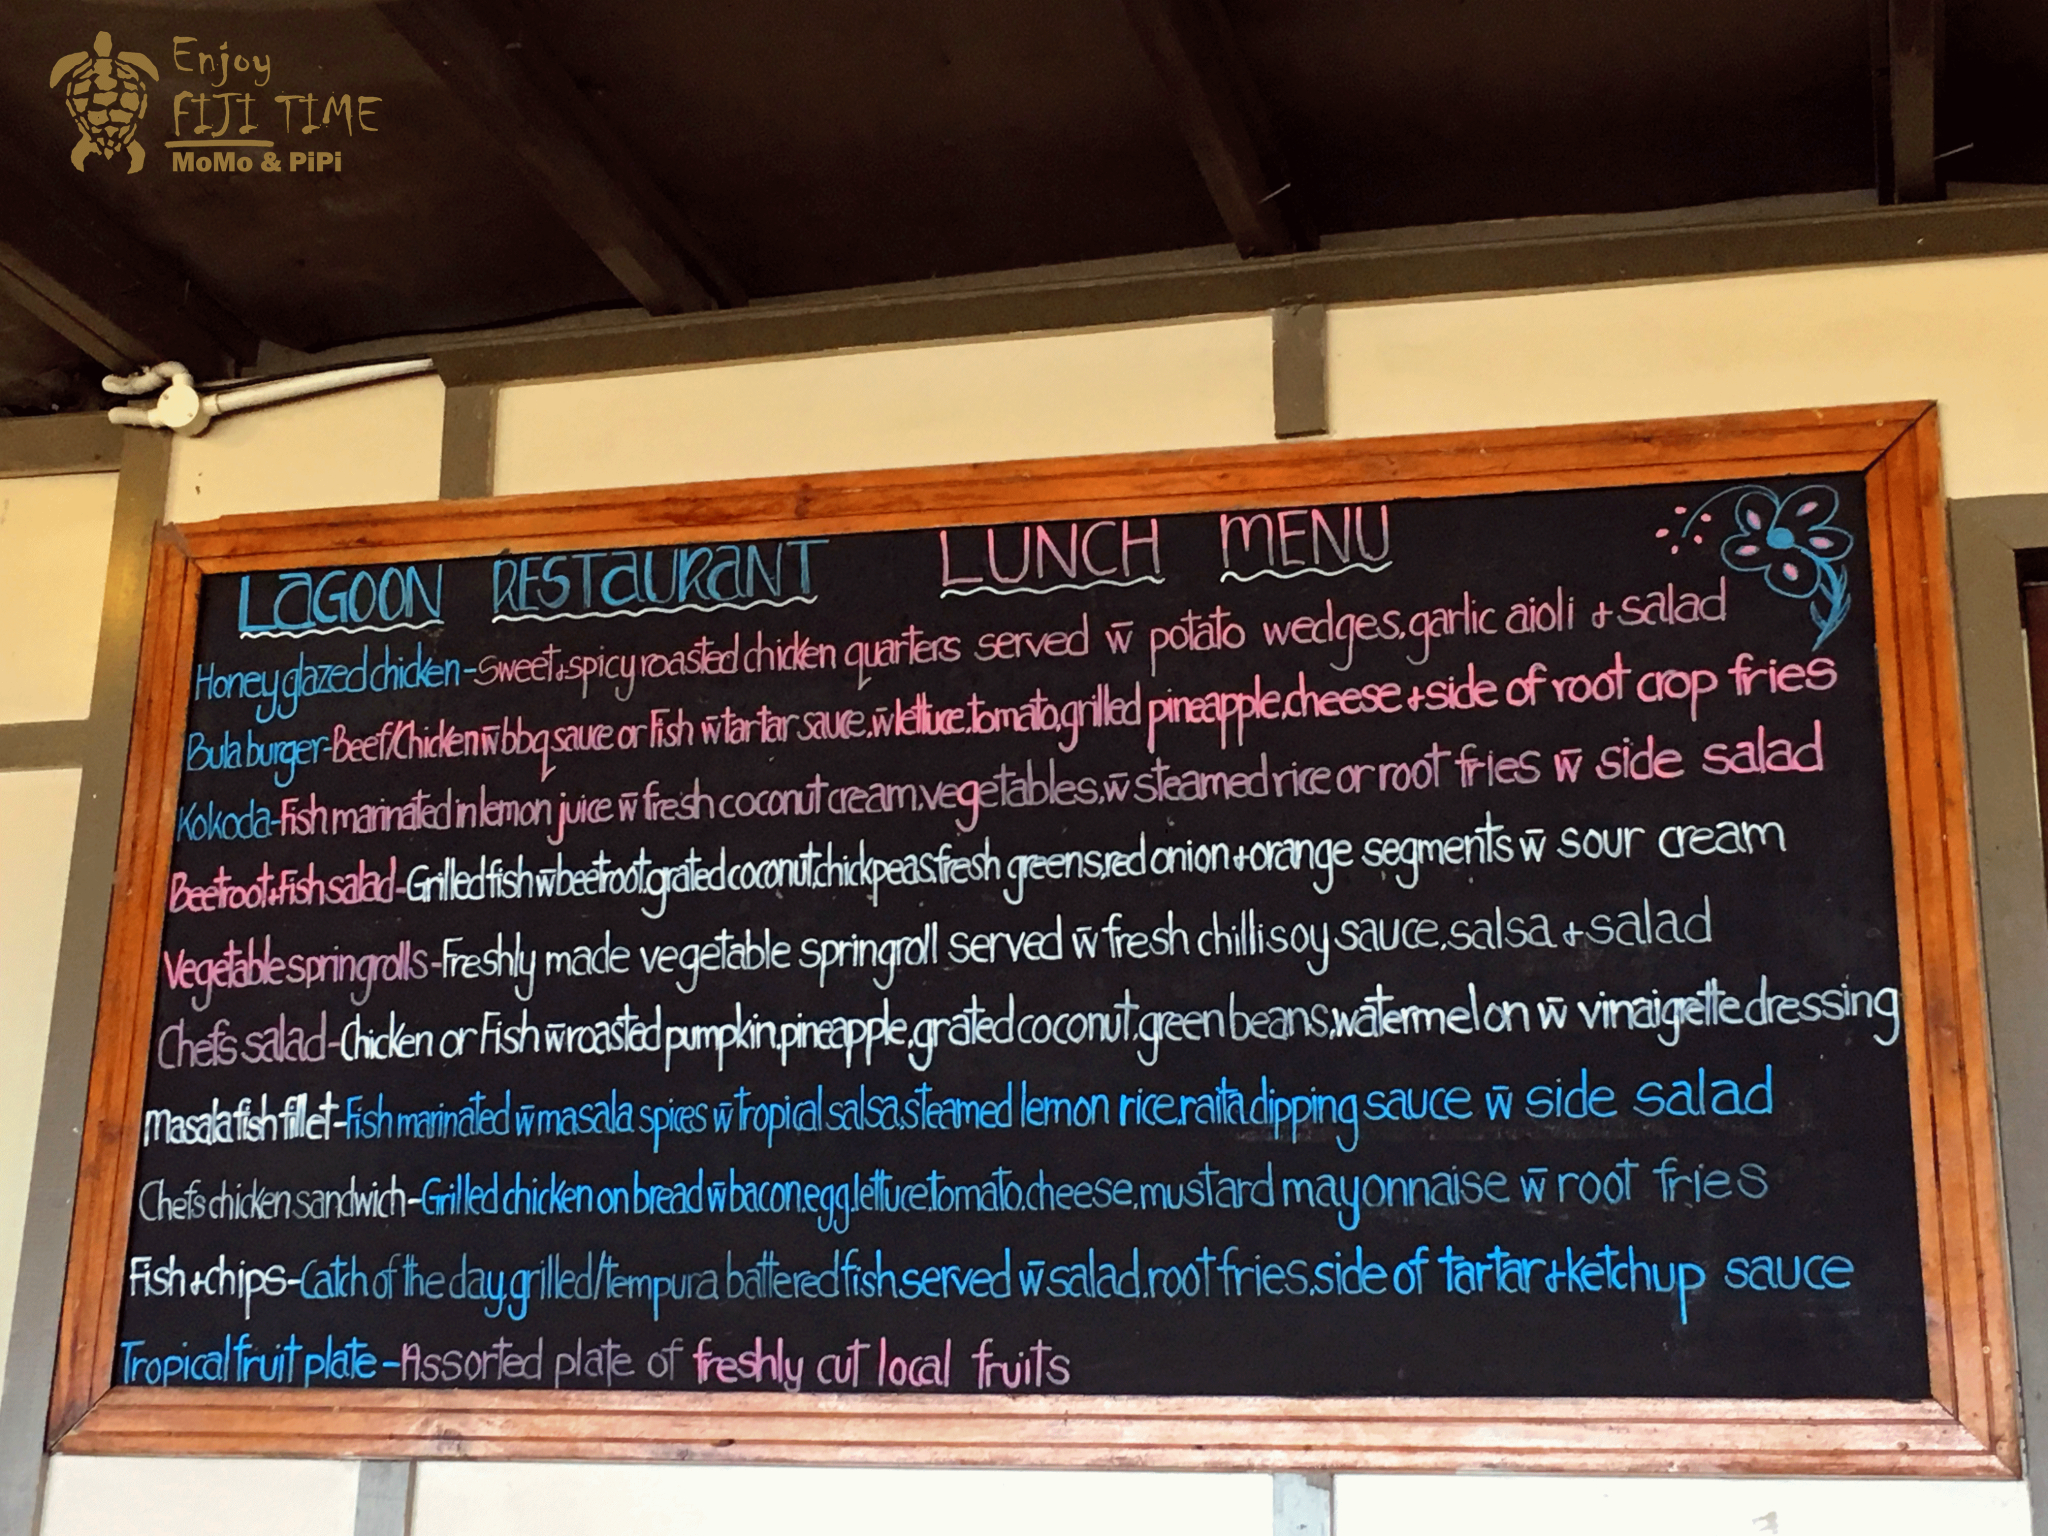 Enjoy
FIJI TIME
MoMo & PiPi
LaGOON RESTaURaNT LUNCH MENU
Honey glazed chicken-sweet+spicy roasted chicken quarters served w̄ potato wedges,garlic aioli + salad
Bula burger-Beef/Chicken w̄ bbq sauce or Fish w̄ tartar sauce,w̄ lettuce,tomato,grilled pineapple,cheese + side of root crop fries
Kokoda-Fish marinated in lemon juice w̄ fresh coconut cream,vegetables,w̄ steamed rice or root fries w̄ side salad
Beetroot+Fish salad-Grilled fish w̄ beetroot,grated coconut,chickpeas,fresh greens,red onion+orange segments w̄ sour cream
Vegetable springrolls-Freshly made vegetable springroll served w̄ fresh chilli soy sauce,salsa + salad
Chefs salad-Chicken or Fish w̄ roasted pumpkin,pineapple,grated coconut,green beans,watermelon w̄ vinaigrette dressing
Masala fish fillet-Fish marinated w̄ masala spices w̄ tropical salsa,steamed lemon rice,raita dipping sauce w̄ side salad
Chefs chicken sandwich-Grilled chicken on bread w̄ bacon,egg,lettuce,tomato,cheese,mustard mayonnaise w̄ root fries
Fish+chips-Catch of the day,grilled/tempura battered fish,served w̄ salad,root fries,side of tartar+ketchup sauce
Tropical fruit plate-Assorted plate of freshly cut local fruits